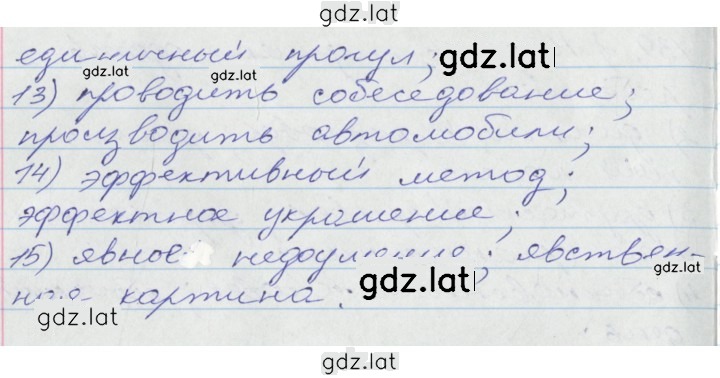 gdz.lat
единичный прогул;
gdz.lat
gdz.lat
gdz.lat
13) проводить собеседование;
производить автомобили;
14) эффективный метод;
эффектное украшение;
15) явное ; явствен-
gdz.lat
gdz.lat
картина.
gdz.lat